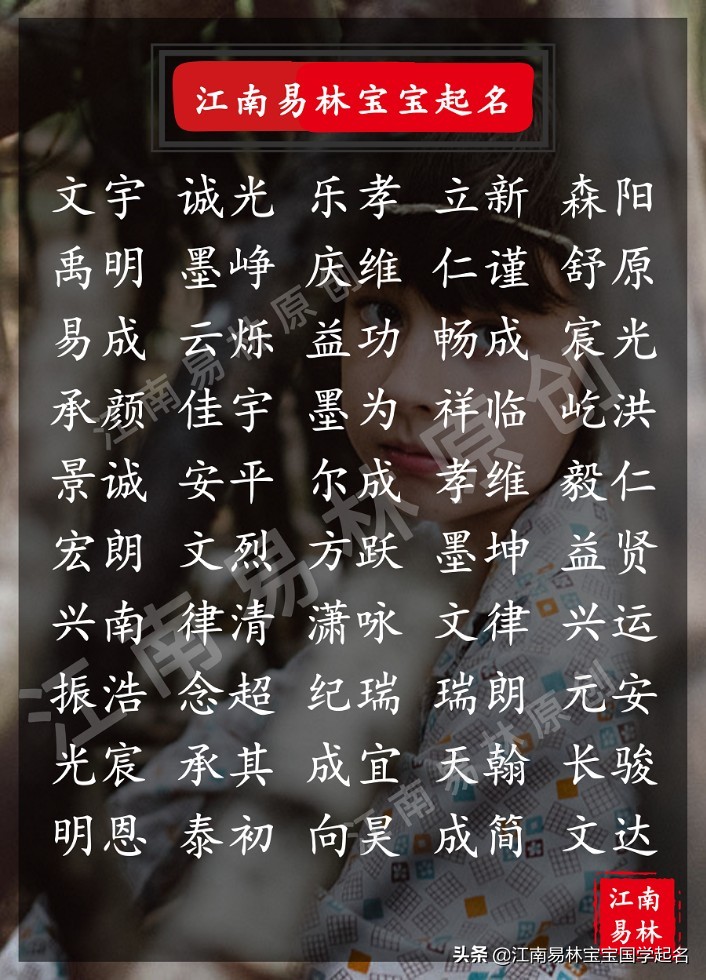 江南易林宝宝起名
文宇 诚光 乐孝 立新 森阳
禹明 墨峥 庆维 仁谨 舒原
易成 云烁 益功 畅成 宸光
承颜 佳宇 墨为 祥临 屹洪
景诚 安平 尔成 孝维 毅仁
宏朗 文烈 方跃 墨坤 益贤
兴南 律清 潇咏 文律 兴运
振浩 念超 纪瑞 瑞朗 元安
光宸 承其 成宜 天翰 长骏
明恩 泰初 向昊 成简 文达
江南易林原创
江南易林原创
江南易林原创
江南
易林
头条 @江南易林宝宝国学起名